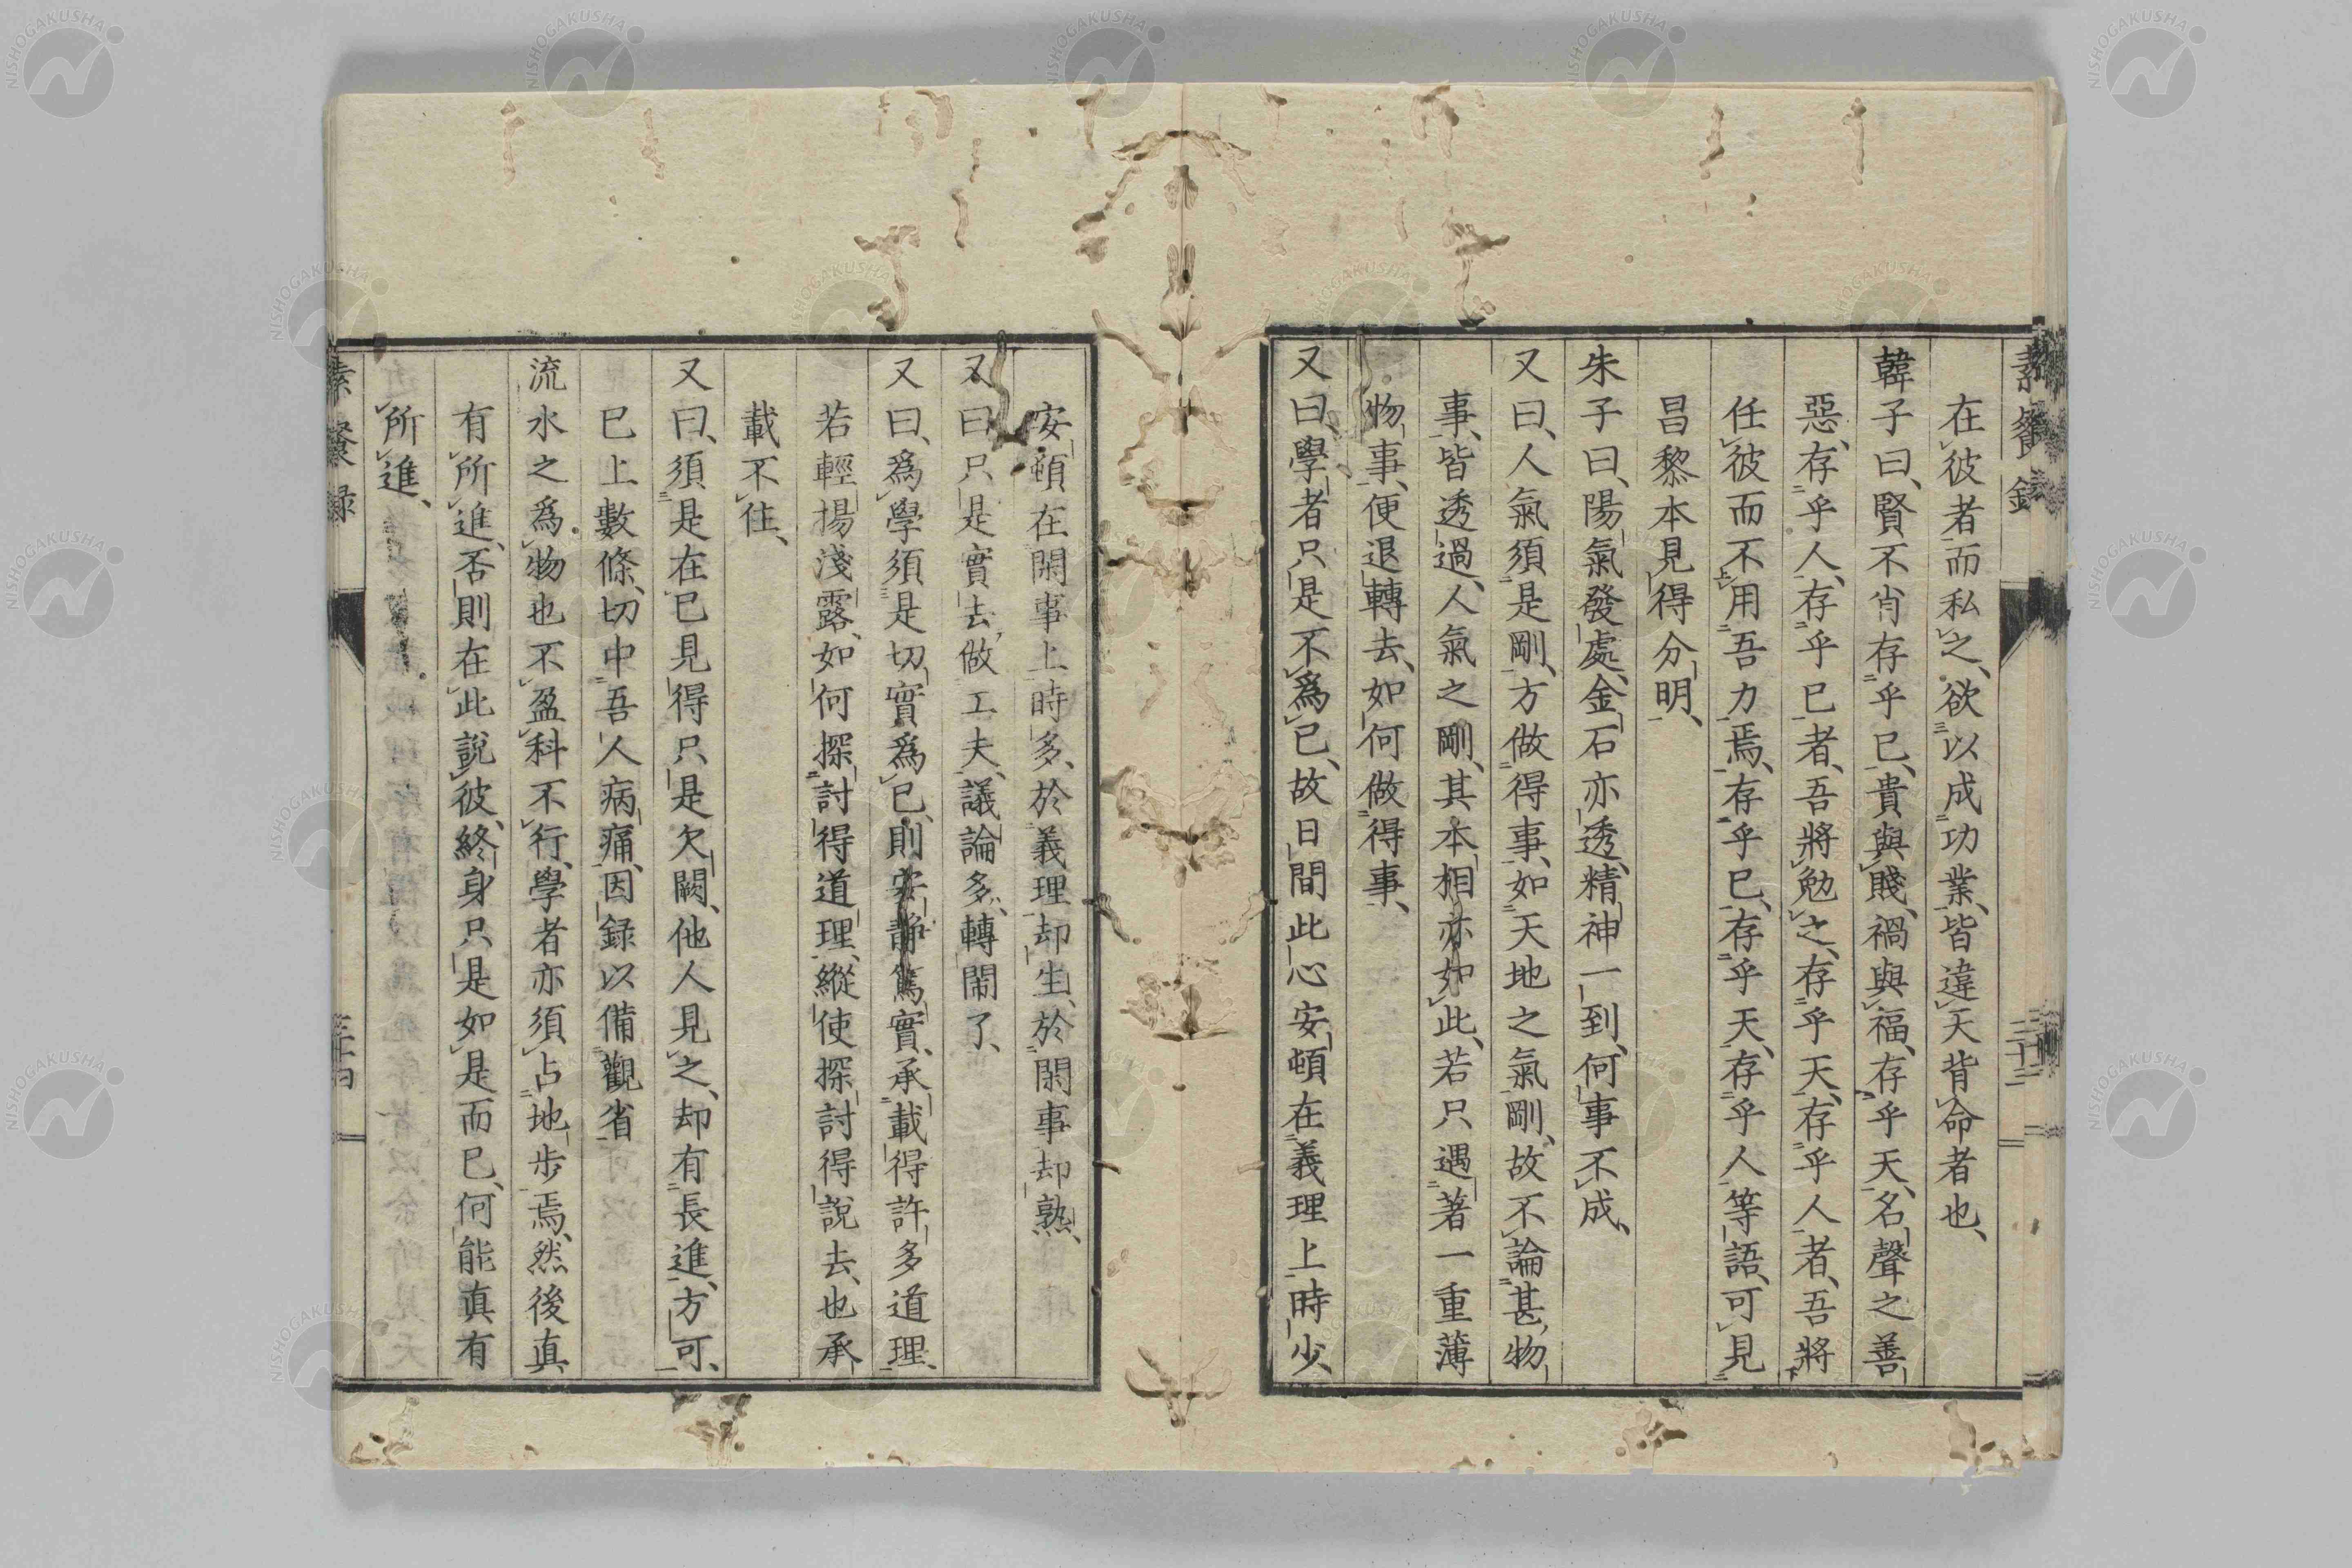 素餐録
在彼者而私之、欲以成功業、皆違天背命者也、
韓子曰、賢不肖存乎已、貴與賤、禍與福、存乎天、名聲之善
惡、存乎人、存乎已者、吾將勉之、存乎天、存乎人者、吾將
任彼而不用吾力焉、存乎已、存乎天、存乎人等語、可見
昌黎本見得分明、
朱子曰、陽氣發處、金石亦透、精神一到、何事不成、
又曰、人氣須是剛、方做得事、如天地之氣剛、故不論甚物
事、皆透過、人氣之剛、其本相亦如此、若只遇著一重薄
物事、便退轉去、如何做得事、
又曰、學者只是不爲已、故日間此心安頓在義理上時少、
安頓在閑事上時多、於義理却生、於閑事却熟、
又曰、只是實去做工夫、議論多、轉鬧了、
又曰、爲學須是切實爲已、則安靜篤實、承載得許多道理、
若輕揚淺露、如何探討得道理、縱使探討得說去、也承
載不住、
又曰、須是在已見得只是欠闕、他人見之、却有長進、方可、
已上數條、切中吾人病痛、因録以備觀省
流水之爲物也不盈科不行、學者亦須占地步焉、然後真
有所進、否則在此說彼、終身只是如是而已、何能真有
所進、
素餐録